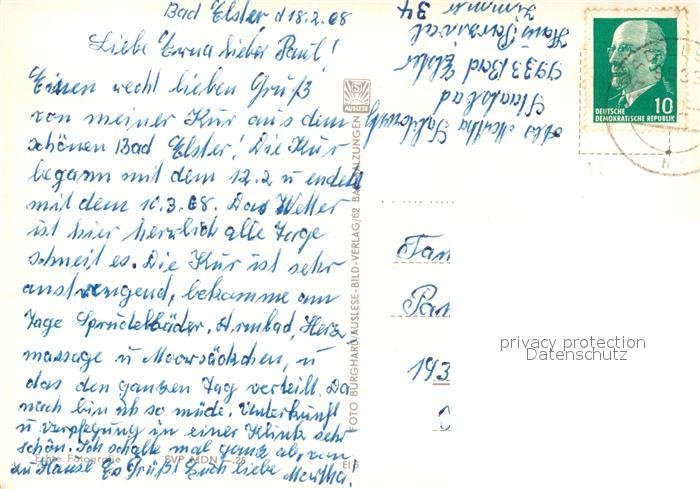 Bad Elster d 18.2.68
Liebe Erna lieber Paul!
Einen recht lieben Gruß
von meiner Kur aus dem
schönen Bad Elster! Die Kur
begann mit dem 12.2 u endet
mit dem 10.3.68. Das Wetter
ist hier herrlich alle Tage
schneit es. Die Kur ist sehr
anstrengend, bekomme am
Tage Sprudelbäder, Armbad, Herz
massage u Moorsäckchen, u
das den ganzen Tag verteilt. Da
nach bin ich so müde. Unterkunft
u verpflegung in einer Klinik sehr
schön. Ich schalte mal ganz ab, von
zu Hause Es Grüßt Euch liebe Martha.
Echte Fotografie EVP MDN -.25
El 5
FOTO BURGHARD/AUSLESE-BILD-VERLAG/62 BAD SALZUNGEN
AUSLESE
Martha
Staatsbad
9933 Bad Elster
Haus Parsival
Zimmer 34
DEUTSCHE
DEMOKRATISCHE REPUBLIK
10
Fam
Pau
193
privacy protection
Datenschutz